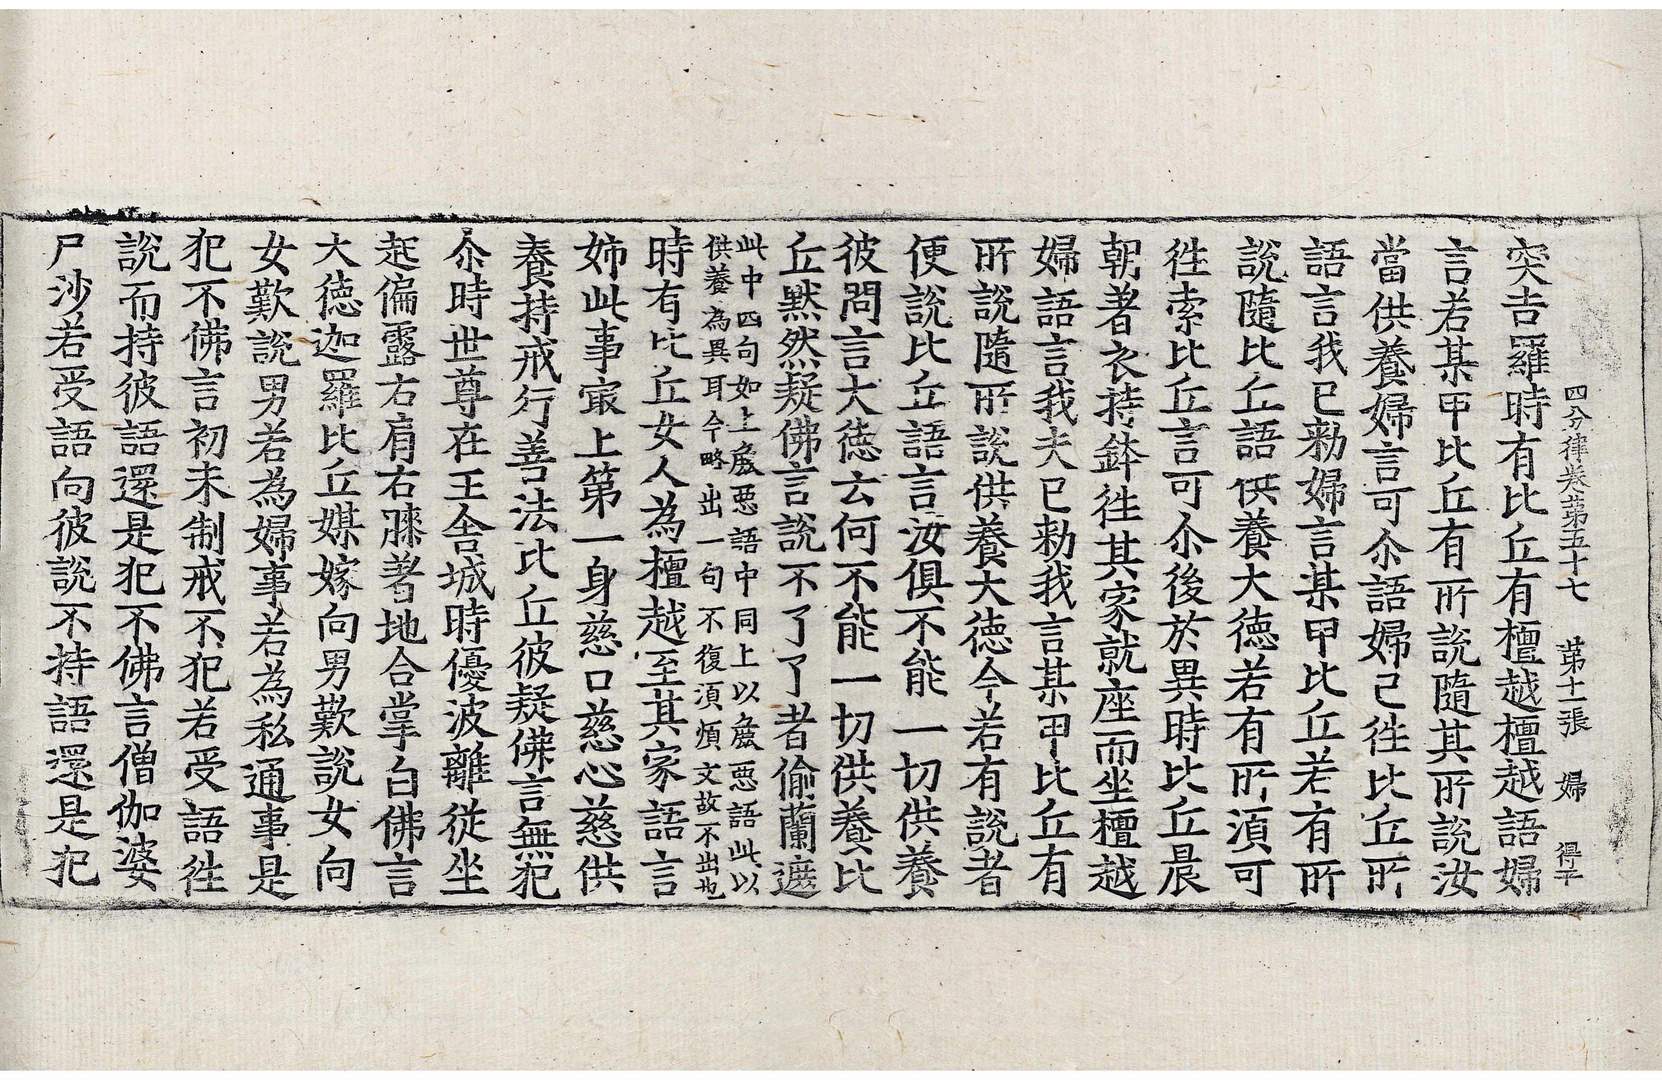 四分律卷苐五十七　苐十一張　婦　得平
突吉羅時有比丘有檀越檀越語婦
言若某甲比丘有所說隨其所說汝
當供養婦言可尒語婦已徃比丘所
語言我已勑婦言某甲比丘若有所
說隨比丘語供養大德若有所湏可
徃索比丘言可尒後於異時比丘晨
朝著衣持鉢徃其家就座而坐檀越
婦語言我夫已勑我言某甲比丘有
所說隨所說供養大德今若有說者
便說比丘語言汝俱不能一切供養
彼問言大德云何不能一切供養比
丘默然疑佛言說不了了者偷蘭遮
此中四句如上麁惡語中同上以麁惡語此以
供養為異耳今略出一句不復湏煩文故不出也
時有比丘女人為檀越至其家語言
姊此事㝡上第一身慈口慈心慈供
養持戒行善法比丘彼疑佛言無犯
尒時世尊在王舍城時優波離從坐
起偏露右肩右膝著地合掌白佛言
大德迦羅比丘媒嫁向男歎說女向
女歎說男若為婦事若為私通事是
犯不佛言初未制戒不犯若受語徃
說而持彼語還是犯不佛言僧伽婆
尸沙若受語向彼說不持語還是犯